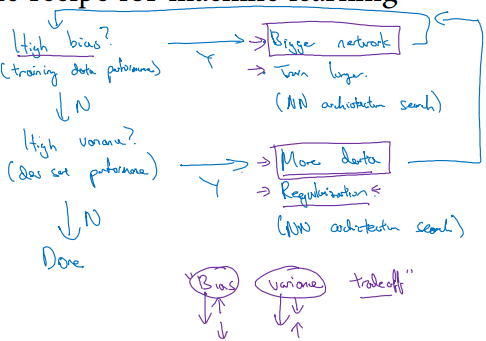 recipe for machine learning
High bias? Y → Bigger network
(training data performance) → Train longer.
↓ N (NN architecture search)
High variance? Y → More data
(dev set performance) → Regularization ←
↓ N (NN architecture search)
Done
"Bias variance tradeoff"